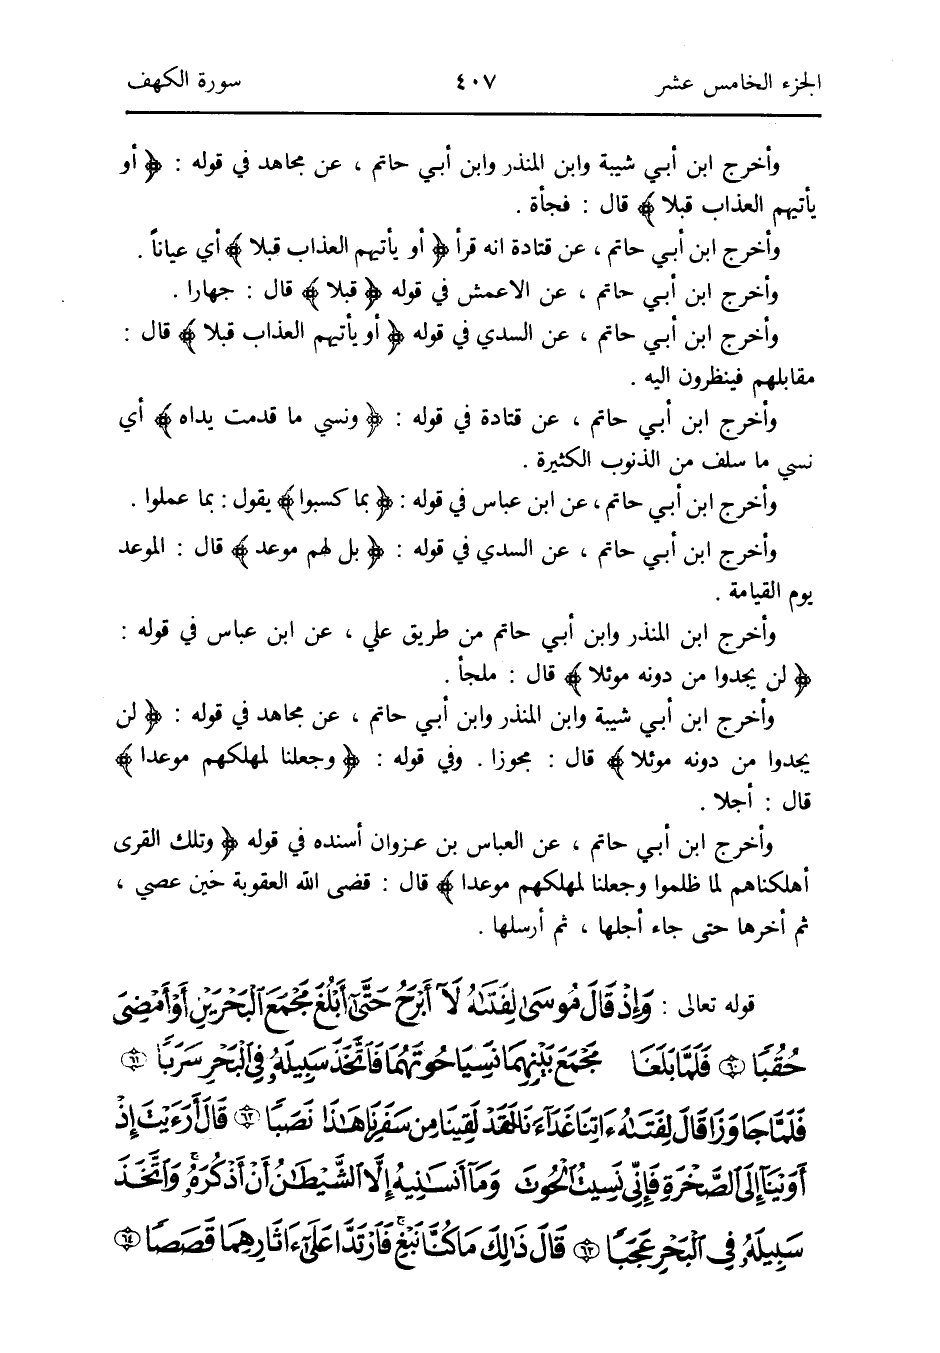 الجزء الخامس عشر ٤٠٧ سورة الكهف
وأخرج ابن أبي شيبة وابن المنذر وابن أبي حاتم ، عن مجاهد في قوله : ﴿ أو
يأتيهم العذاب قبلا ﴾ قال : فجأة .
وأخرج ابن أبي حاتم ، عن قتادة انه قرأ ﴿ أو يأتيهم العذاب قبلا ﴾ أي عياناً .
وأخرج ابن أبي حاتم ، عن الاعمش في قوله ﴿ قبلا ﴾ قال : جهارا .
وأخرج ابن أبي حاتم ، عن السدي في قوله ﴿ أو يأتيهم العذاب قبلا ﴾ قال :
مقابلهم فينظرون اليه .
وأخرج ابن أبي حاتم ، عن قتادة في قوله : ﴿ ونسي ما قدمت يداه ﴾ أي
نسي ما سلف من الذنوب الكثيرة .
وأخرج ابن أبي حاتم ، عن ابن عباس في قوله : ﴿ بما كسبوا ﴾ يقول : بما عملوا .
وأخرج ابن أبي حاتم ، عن السدي في قوله : ﴿ بل لهم موعد ﴾ قال : الموعد
يوم القيامة .
وأخرج ابن المنذر وابن أبي حاتم من طريق علي ، عن ابن عباس في قوله :
﴿ لن يجدوا من دونه موئلا ﴾ قال : ملجأ .
وأخرج ابن أبي شيبة وابن المنذر وابن أبي حاتم ، عن مجاهد في قوله : ﴿ لن
يجدوا من دونه موئلا ﴾ قال : مجوزا . وفي قوله : ﴿ وجعلنا لمهلكهم موعدا ﴾
قال : أجلا .
وأخرج ابن أبي حاتم ، عن العباس بن عزوان أسنده في قوله ﴿ وتلك القرى
أهلكناهم لما ظلموا وجعلنا لمهلكهم موعدا ﴾ قال : قضى الله العقوبة خين عصي ،
ثم أخرها حتى جاء أجلها ، ثم أرسلها .
قوله تعالى : وَإِذْ قَالَ مُوسَىٰ لِفَتَىٰهُ لَآ أَبْرَحُ حَتَّىٰٓ أَبْلُغَ مَجْمَعَ ٱلْبَحْرَيْنِ أَوْ أَمْضِىَ
حُقُبًا ۝٦٠ فَلَمَّا بَلَغَا مَجْمَعَ بَيْنِهِمَا نَسِيَا حُوتَهُمَا فَٱتَّخَذَ سَبِيلَهُۥ فِى ٱلْبَحْرِ سَرَبًا ۝٦١
فَلَمَّا جَاوَزَا قَالَ لِفَتَىٰهُ ءَاتِنَا غَدَآءَنَا لَقَدْ لَقِينَا مِن سَفَرِنَا هَٰذَا نَصَبًا ۝٦٢ قَالَ أَرَءَيْتَ إِذْ
أَوَيْنَآ إِلَى ٱلصَّخْرَةِ فَإِنِّى نَسِيتُ ٱلْحُوتَ وَمَآ أَنسَىٰنِيهُ إِلَّا ٱلشَّيْطَٰنُ أَنْ أَذْكُرَهُۥ ۚ وَٱتَّخَذَ
سَبِيلَهُۥ فِى ٱلْبَحْرِ عَجَبًا ۝٦٣ قَالَ ذَٰلِكَ مَا كُنَّا نَبْغِ ۚ فَٱرْتَدَّا عَلَىٰٓ ءَاثَارِهِمَا قَصَصًا ۝٦٤